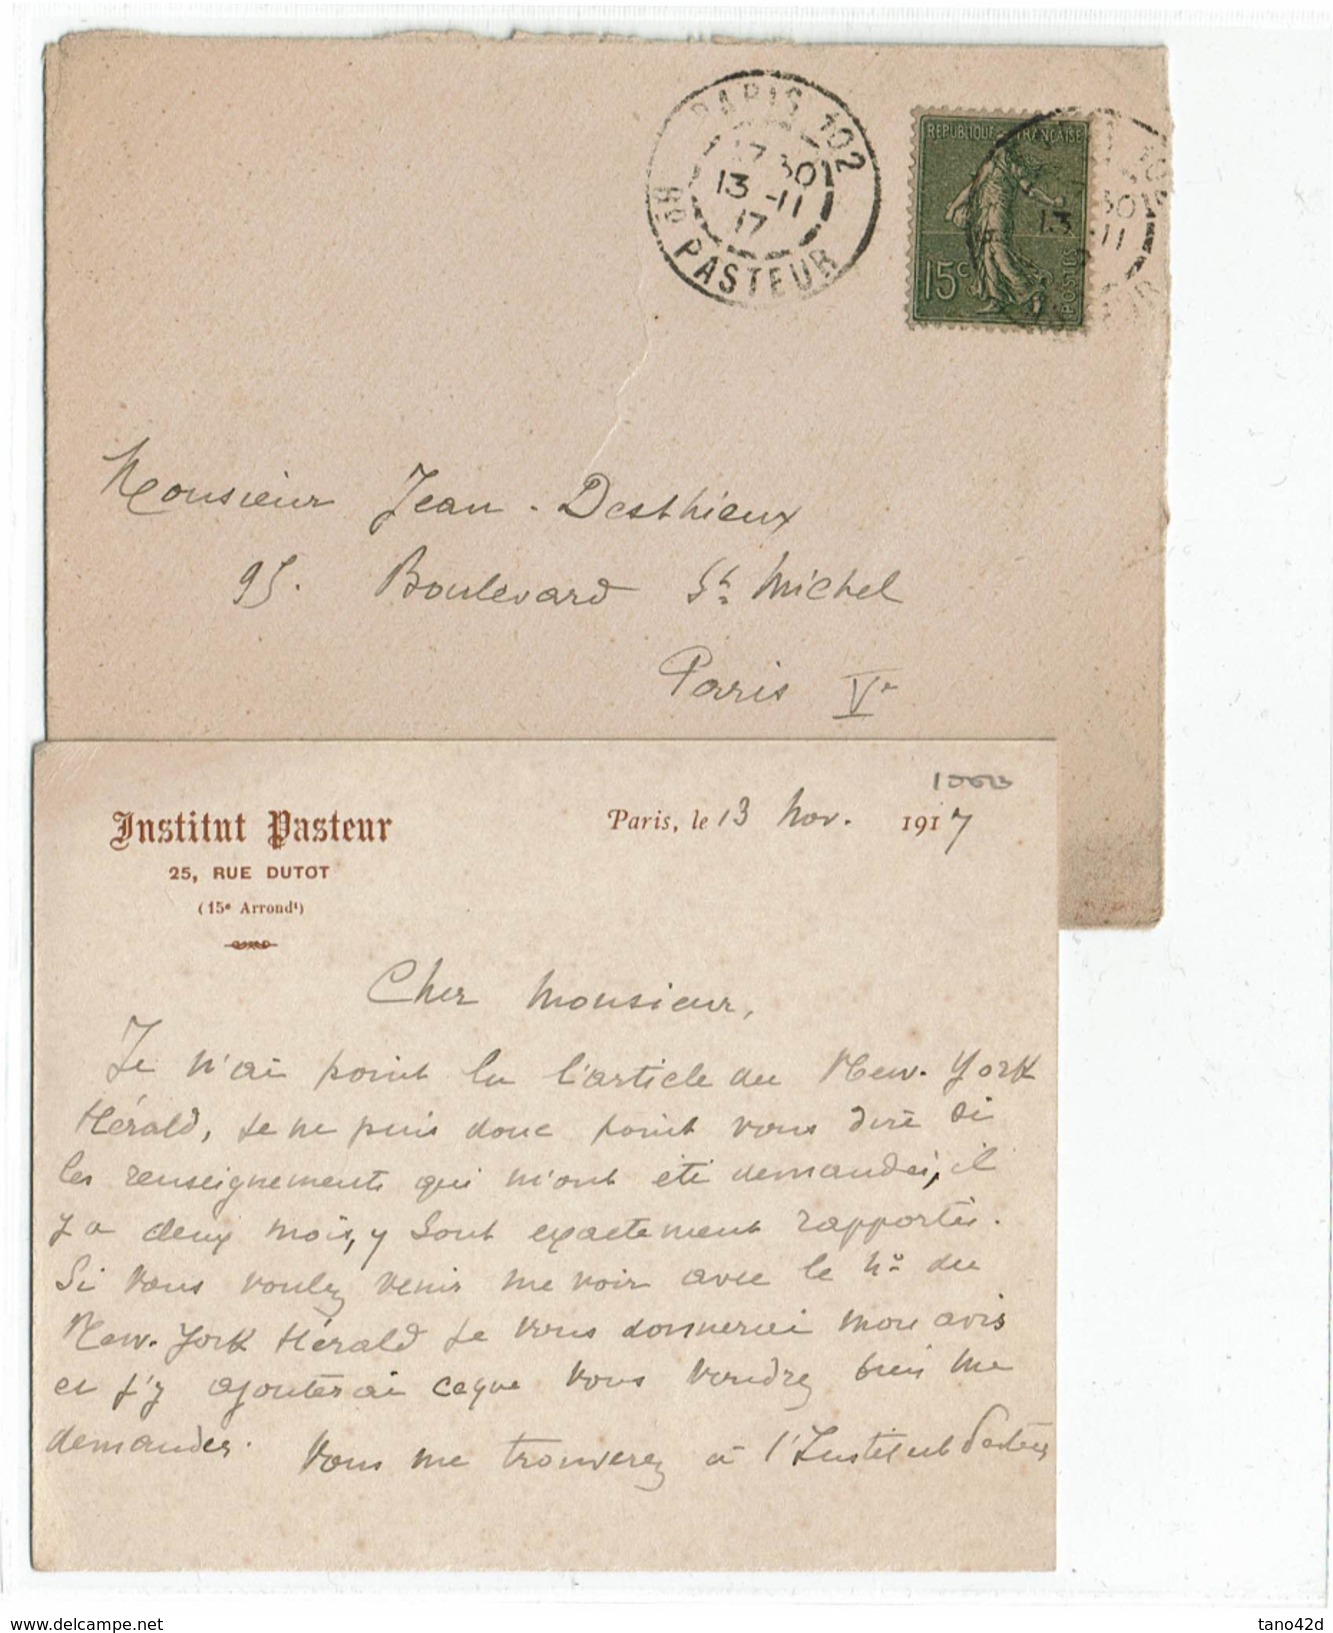 PARIS 102
17 30
13 -11
17
Bd PASTEUR
REPUBLIQUE FRANÇAISE
15c
POSTES
13
30
11
Monsieur Jean-Desthieux
95. Boulevard St Michel
Paris Ve
Institut Pasteur
25, RUE DUTOT
(15e Arrondt)
Paris, le 13 Nov. 1917
Cher Monsieur,
Je n'ai point lu l'article du New-York
Hérald, je ne puis donc point vous dire si
les renseignements qui m'ont été demandés, il
y a deux mois, y sont exactement rapportés.
Si vous voulez venir me voir avec le No du
New-York Hérald je vous donnerai mon avis
et j'y ajouterai ce que vous voudrez bien me
demander. Vous me trouverez à l'Institut Pasteur
delcampe.net
tano42d